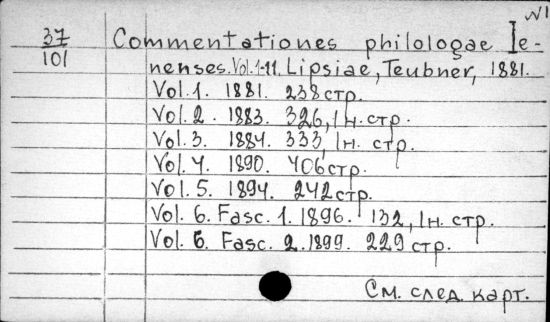 №1
37/101 Commentationes philologae Ie-
nenses. Vol. 1-11. Lipsiae, Teubner, 1881.
Vol. 1. 1881. 238 стр.
Vol. 2. 1883. 326, 1 н. стр.
Vol. 3. 1884. 333, 1 н. стр.
Vol. 4. 1890. 406 стр.
Vol. 5. 1894. 242 стр.
Vol. 6. Fasc. 1. 1896. 132, 1 н. стр.
Vol. 6. Fasc. 2. 1899. 229 стр.
См. след. карт.